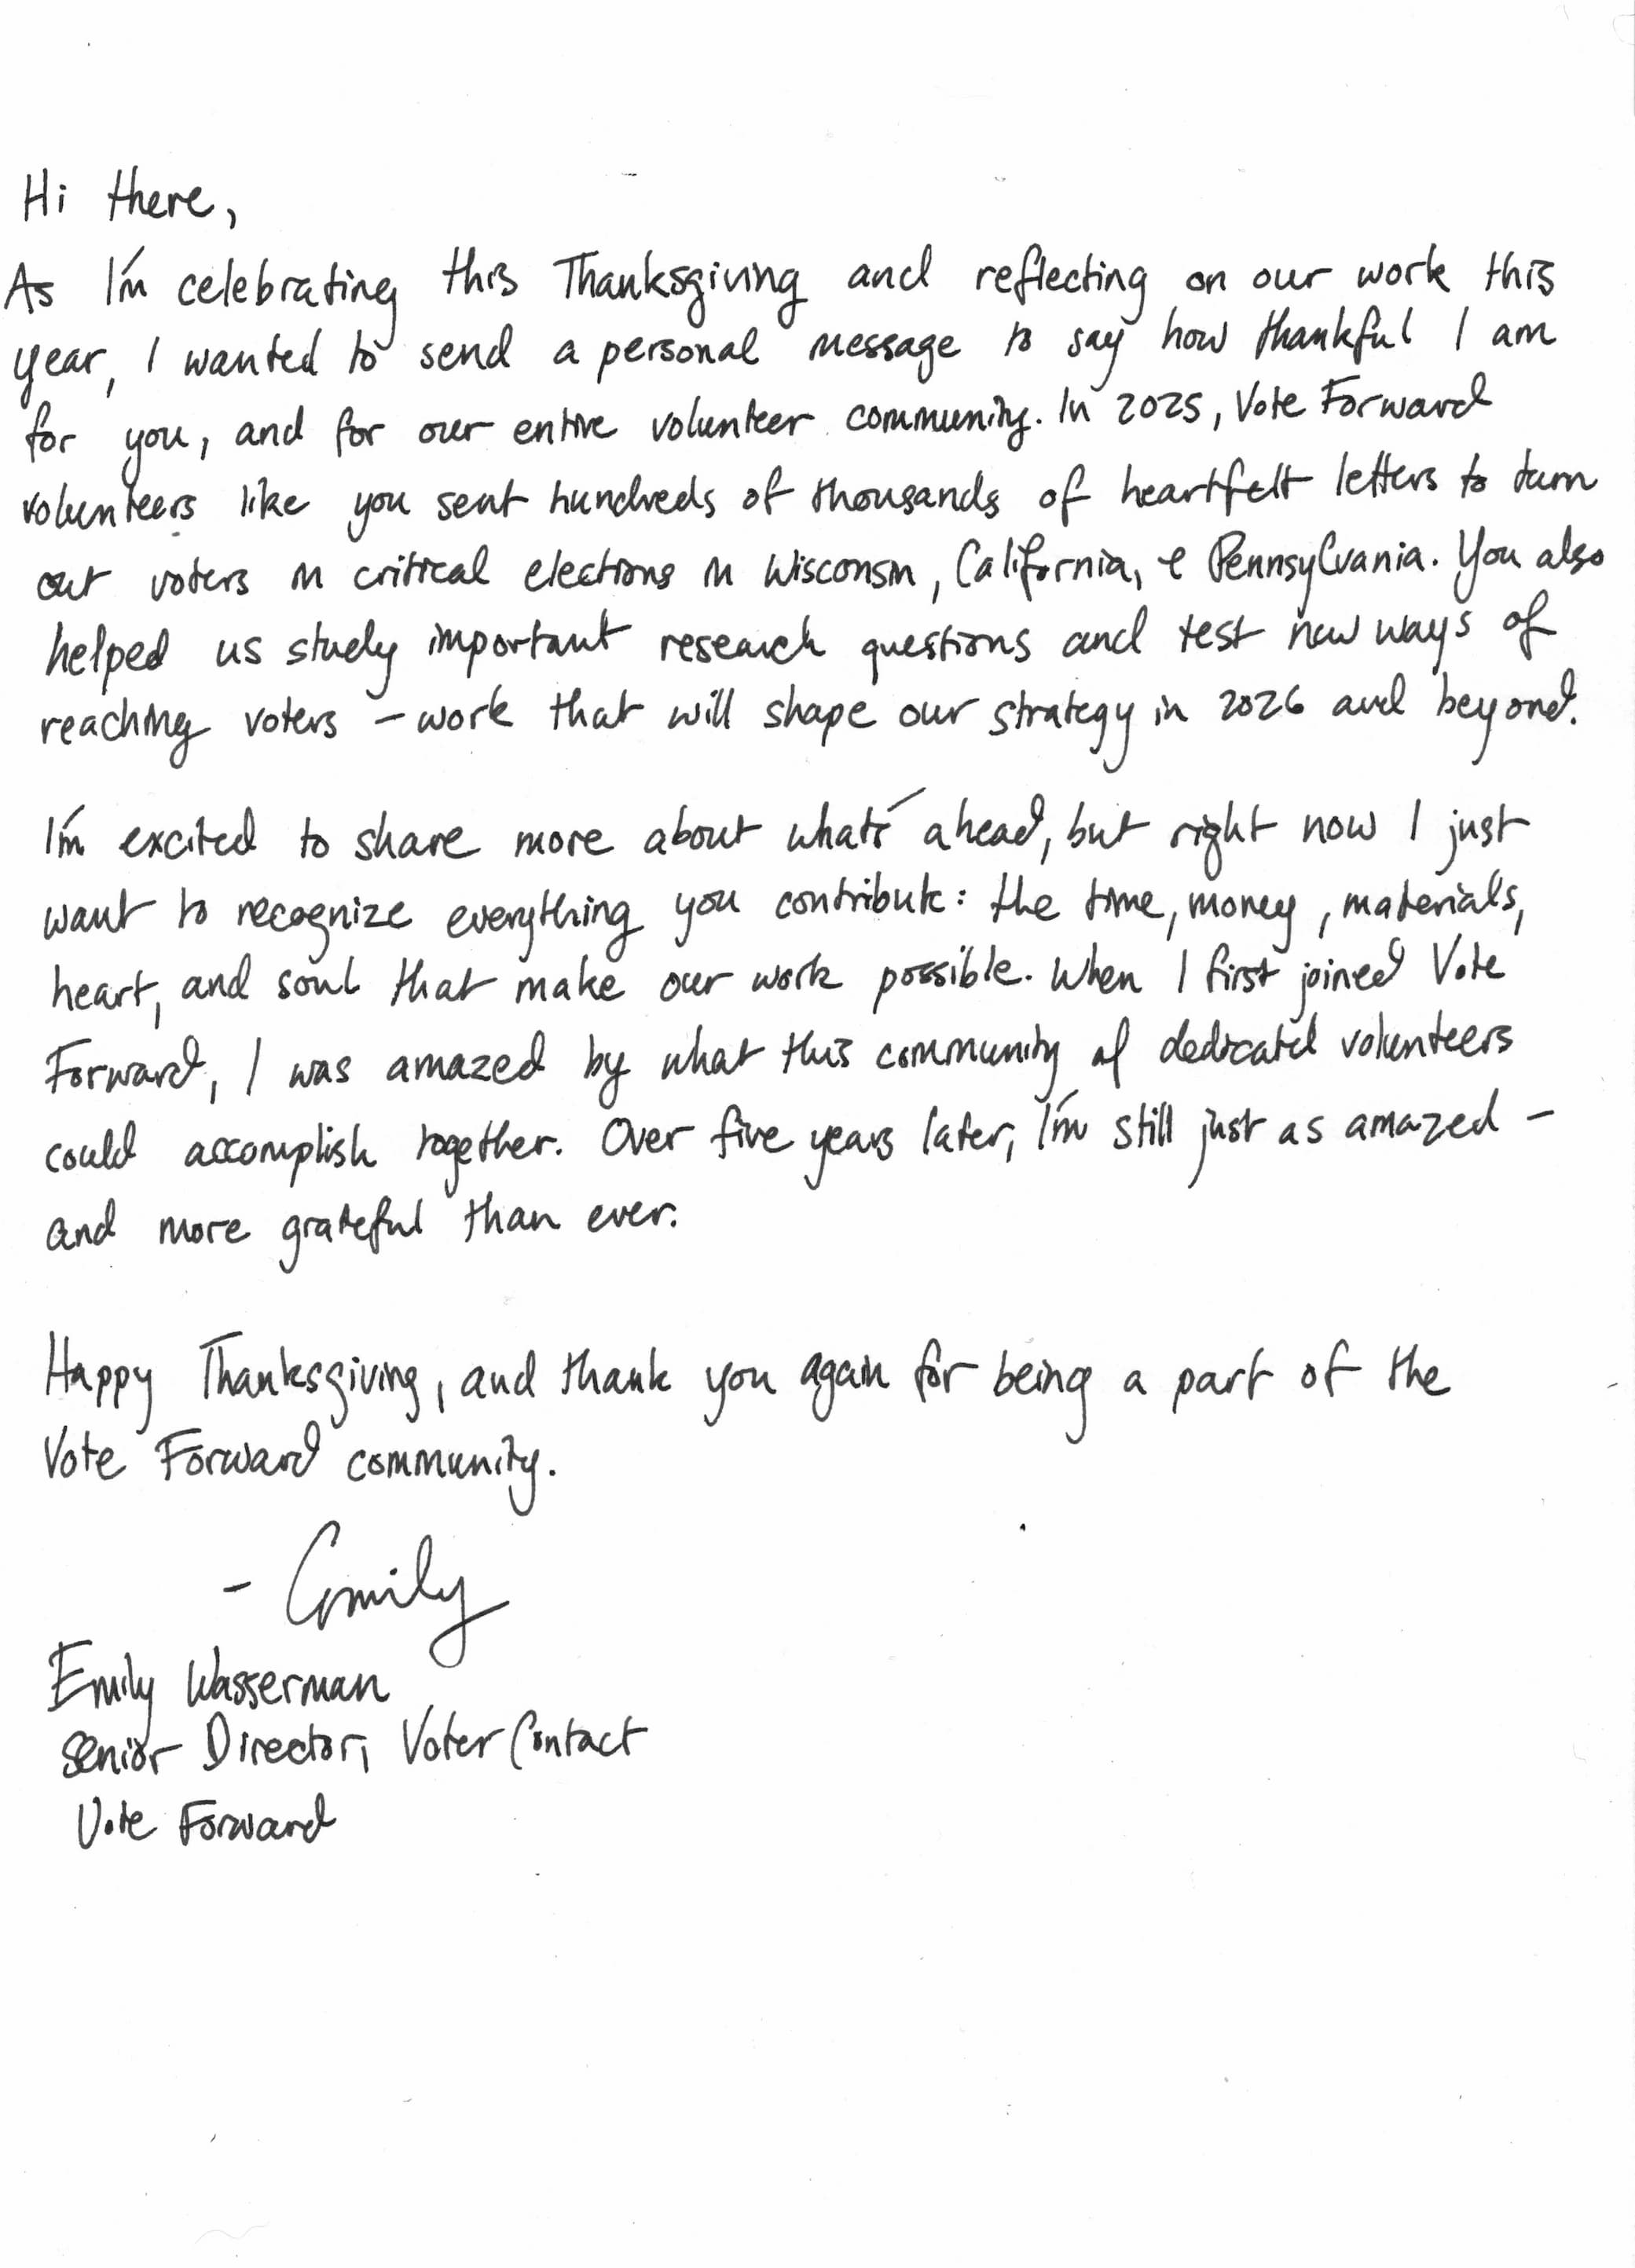 Hi there,
As I'm celebrating this Thanksgiving and reflecting on our work this
year, I wanted to send a personal message to say how thankful I am
for you, and for our entire volunteer community. In 2025, Vote Forward
volunteers like you sent hundreds of thousands of heartfelt letters to turn
out voters in critical elections in Wisconsin, California, & Pennsylvania. You also
helped us study important research questions and test new ways of
reaching voters – work that will shape our strategy in 2026 and beyond.
I'm excited to share more about what's ahead, but right now I just
want to recognize everything you contribute: the time, money, materials,
heart, and soul that make our work possible. When I first joined Vote
Forward, I was amazed by what this community of dedicated volunteers
could accomplish together. Over five years later, I'm still just as amazed –
and more grateful than ever.
Happy Thanksgiving, and thank you again for being a part of the
Vote Forward community.
- Emily
Emily Wasserman
Senior Director, Voter Contact
Vote Forward